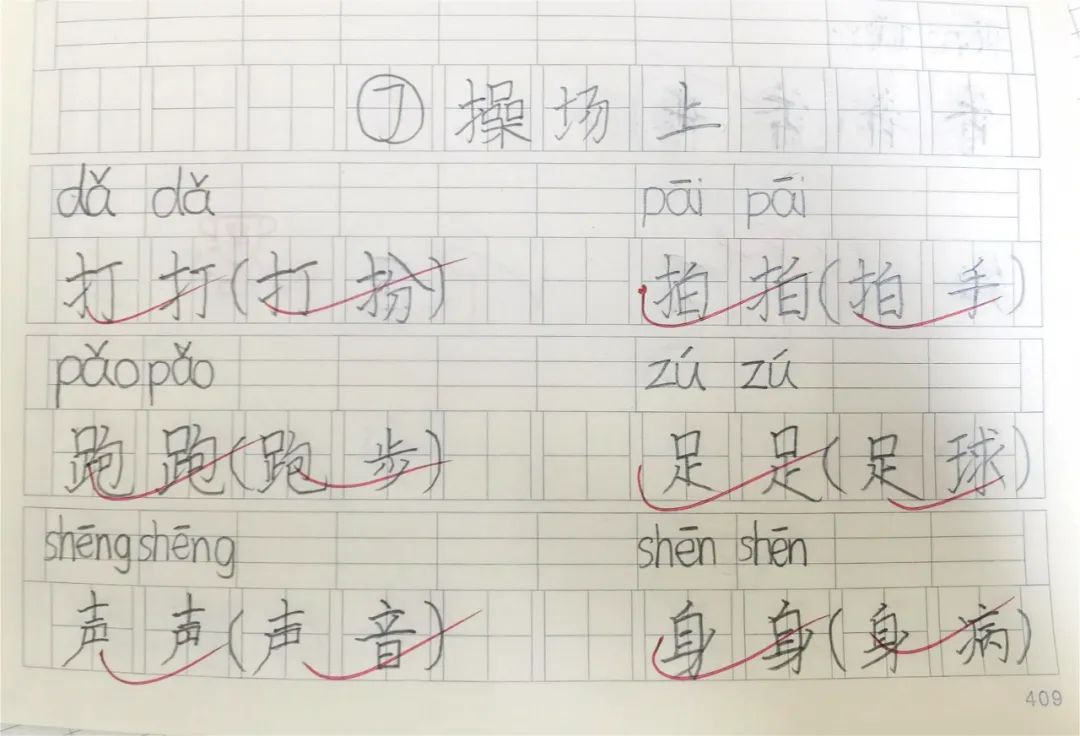 ⑦操场上
dǎ dǎ pāi pāi
打打(打扮) 拍拍(拍手)
pǎo pǎo zú zú
跑跑(跑步) 足足(足球)
shēng shēng shēn shēn
声声(声音) 身身(身病)
409